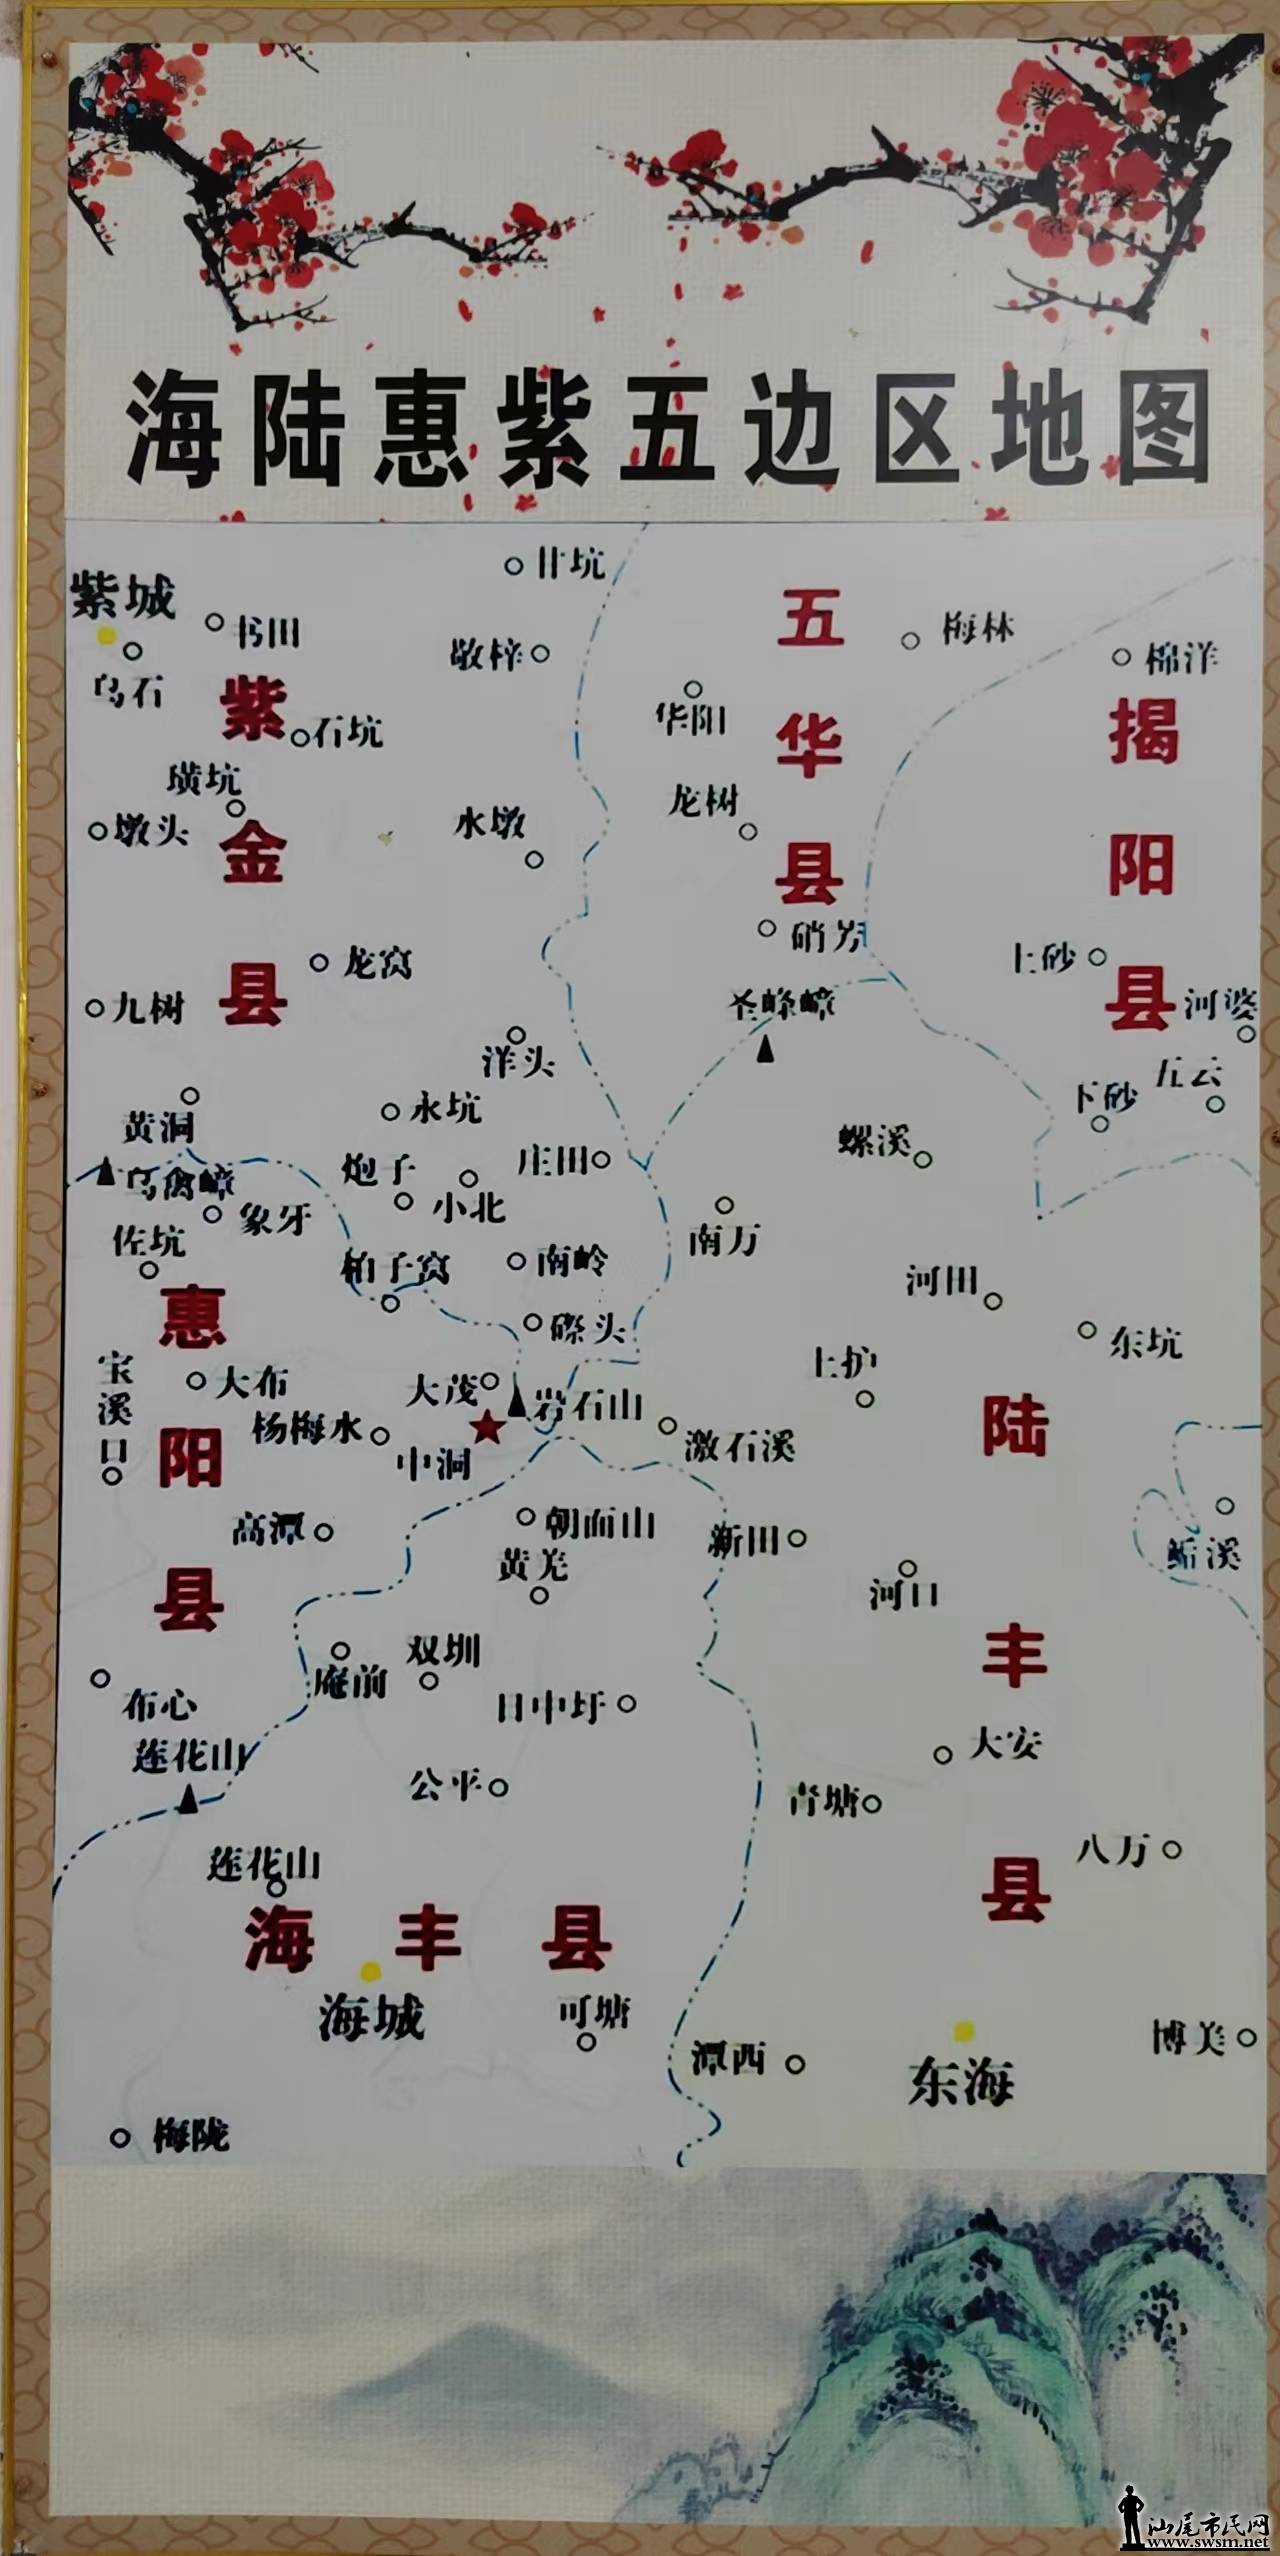 海陆惠紫五边区地图
甘坑
紫城
书田
五
梅林
敬梓
棉洋
乌石
紫
华阳
揭
石坑
华
璜坑
龙树
墩头
水墩
金
县
阳
硝芳
龙窝
上砂
九树
县
圣峰嶂
县
河婆
洋头
五云
黄洞
永坑
下砂
螺溪
乌禽嶂
炮子
庄田
象牙
小北
佐坑
南万
柏子窝
南岭
河田
惠
磜头
东坑
宝溪口
大布
大茂
上护
岩石山
陆
杨梅水
激石溪
阳
中洞
高潭
朝面山
新田
黄羌
河口
县
双圳
丰
庵前
布心
日中圩
莲花山
大安
公平
青塘
八万
莲花山
县
海丰县
海城
可塘
博美
潭西
东海
梅陇
汕尾市民网
www.swsm.net